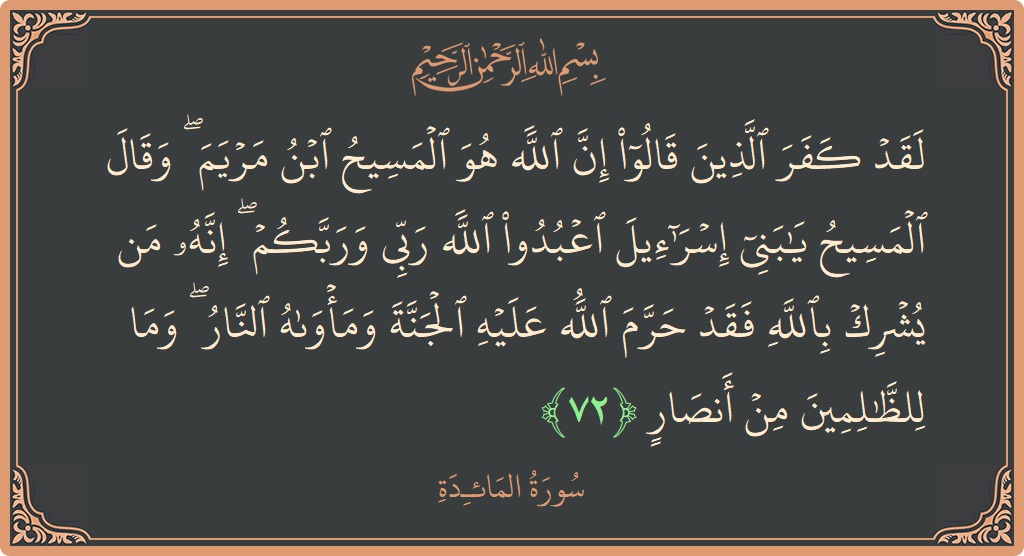 بِسْمِ ٱللَّهِ ٱلرَّحْمَٰنِ ٱلرَّحِيمِ
لَقَدۡ كَفَرَ ٱلَّذِينَ قَالُوٓاْ إِنَّ ٱللَّهَ هُوَ ٱلۡمَسِيحُ ٱبۡنُ مَرۡيَمَۖ وَقَالَ
ٱلۡمَسِيحُ يَٰبَنِيٓ إِسۡرَٰٓءِيلَ ٱعۡبُدُواْ ٱللَّهَ رَبِّي وَرَبَّكُمۡۖ إِنَّهُۥ مَن
يُشۡرِكۡ بِٱللَّهِ فَقَدۡ حَرَّمَ ٱللَّهُ عَلَيۡهِ ٱلۡجَنَّةَ وَمَأۡوَىٰهُ ٱلنَّارُۖ وَمَا
لِلظَّٰلِمِينَ مِنۡ أَنصَارٖ ﴿٧٢﴾
سُورَةُ المَائـِدَةِ